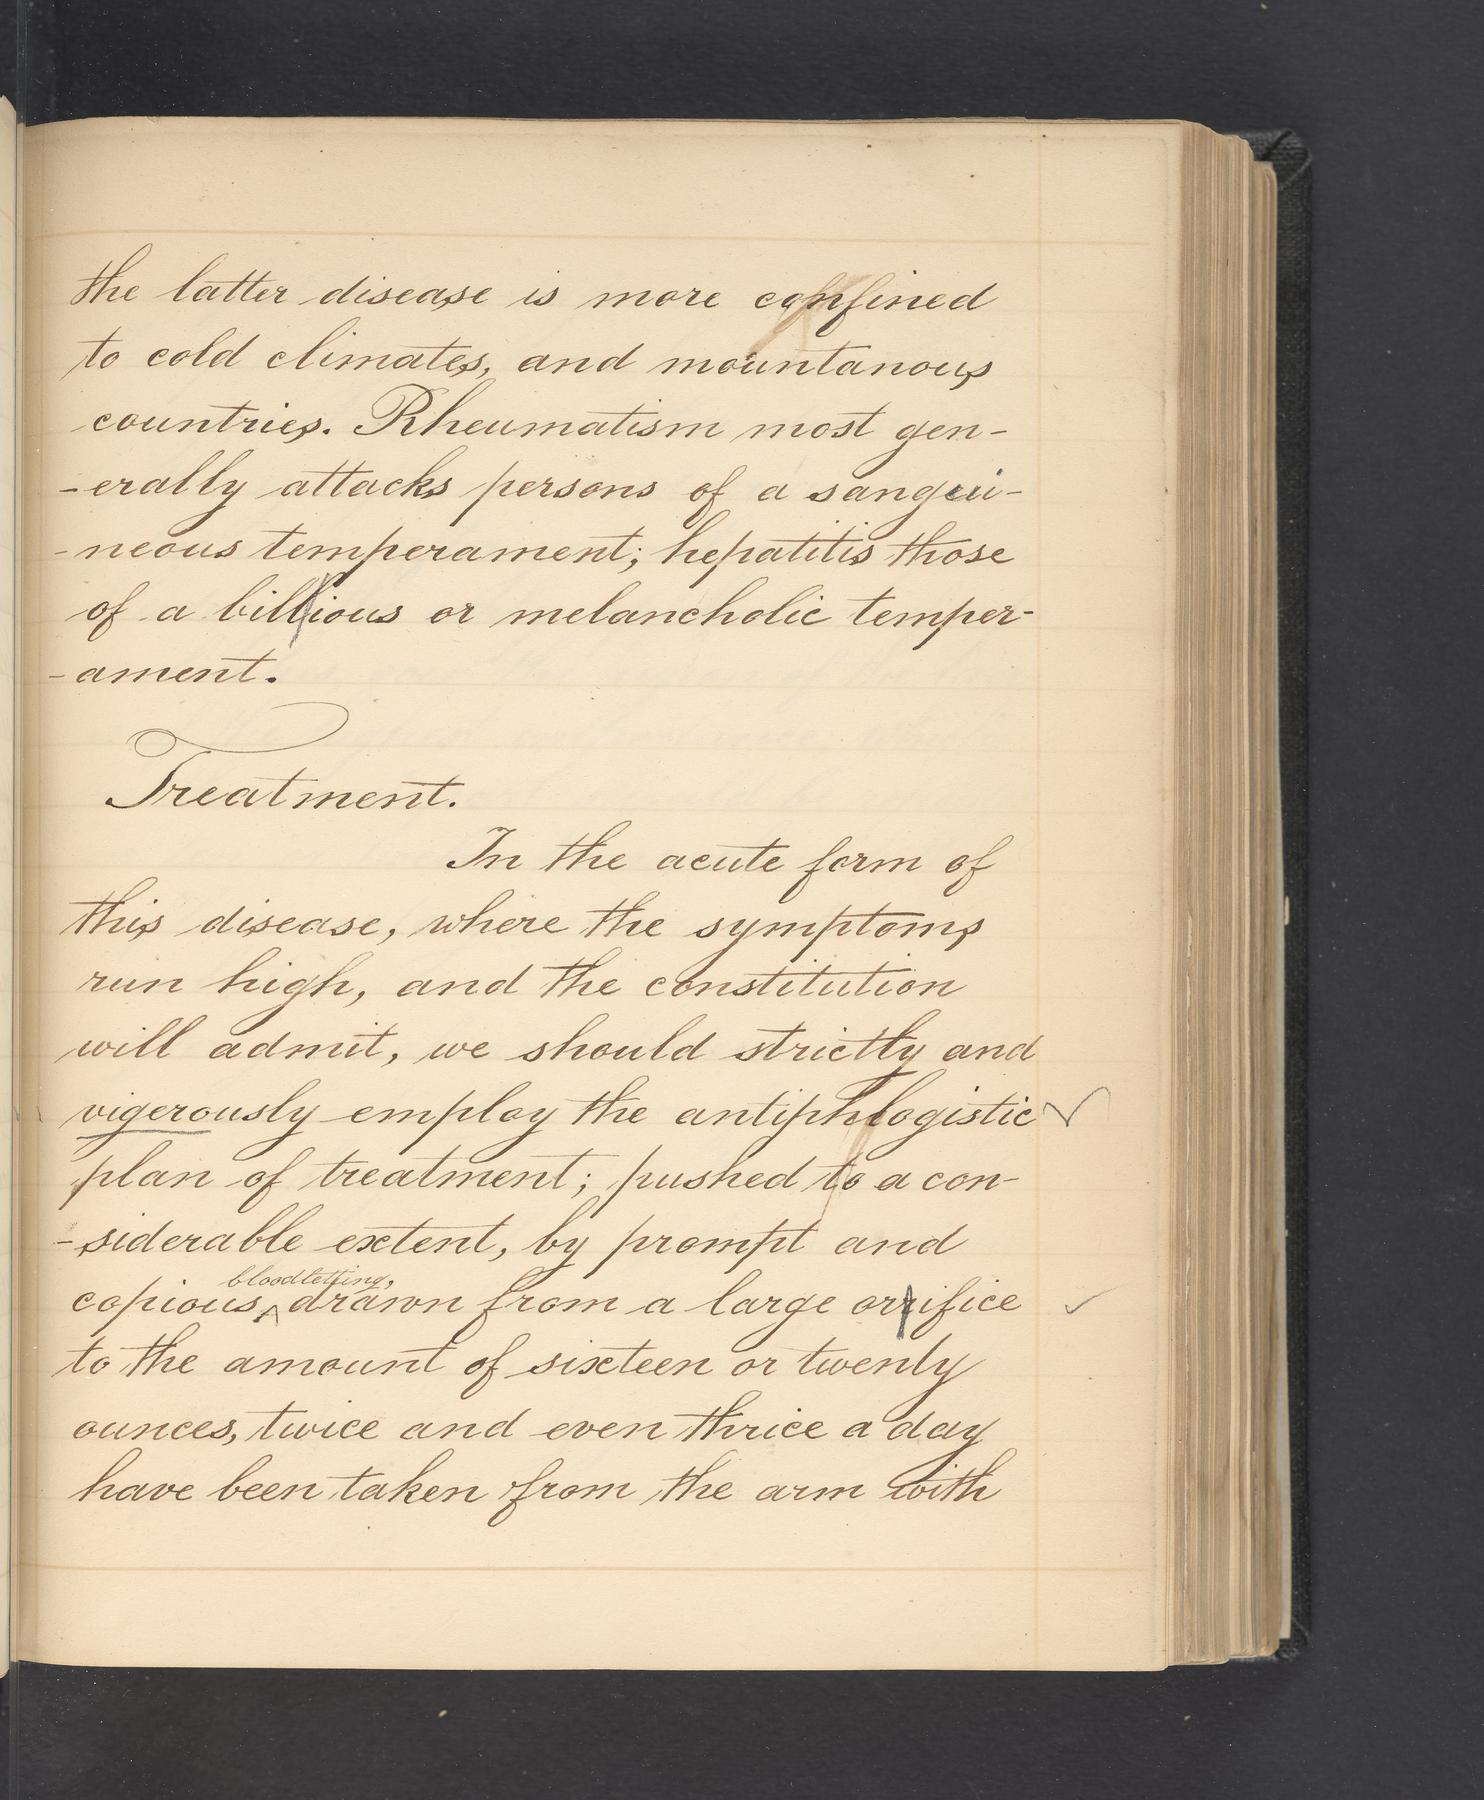 the latter disease is more confined
to cold climates, and mountanous
countries. Rheumatism most gen-
-erally attacks persons of a sangui-
-neous temperament; hepatitis those
of a billious or melancholic temper-
-ament.
Treatment.
In the acute form of
this disease, where the symptoms
run high, and the constitution
will admit, we should strictly and
vigerously employ the antiphlogistic
plan of treatment; pushed to a con-
-siderable extent, by prompt and
bloodletting,
copious, ^ drawn from a large orrifice
to the amount of sixteen or twenty
ounces, twice and even thrice a day
have been taken from the arm with